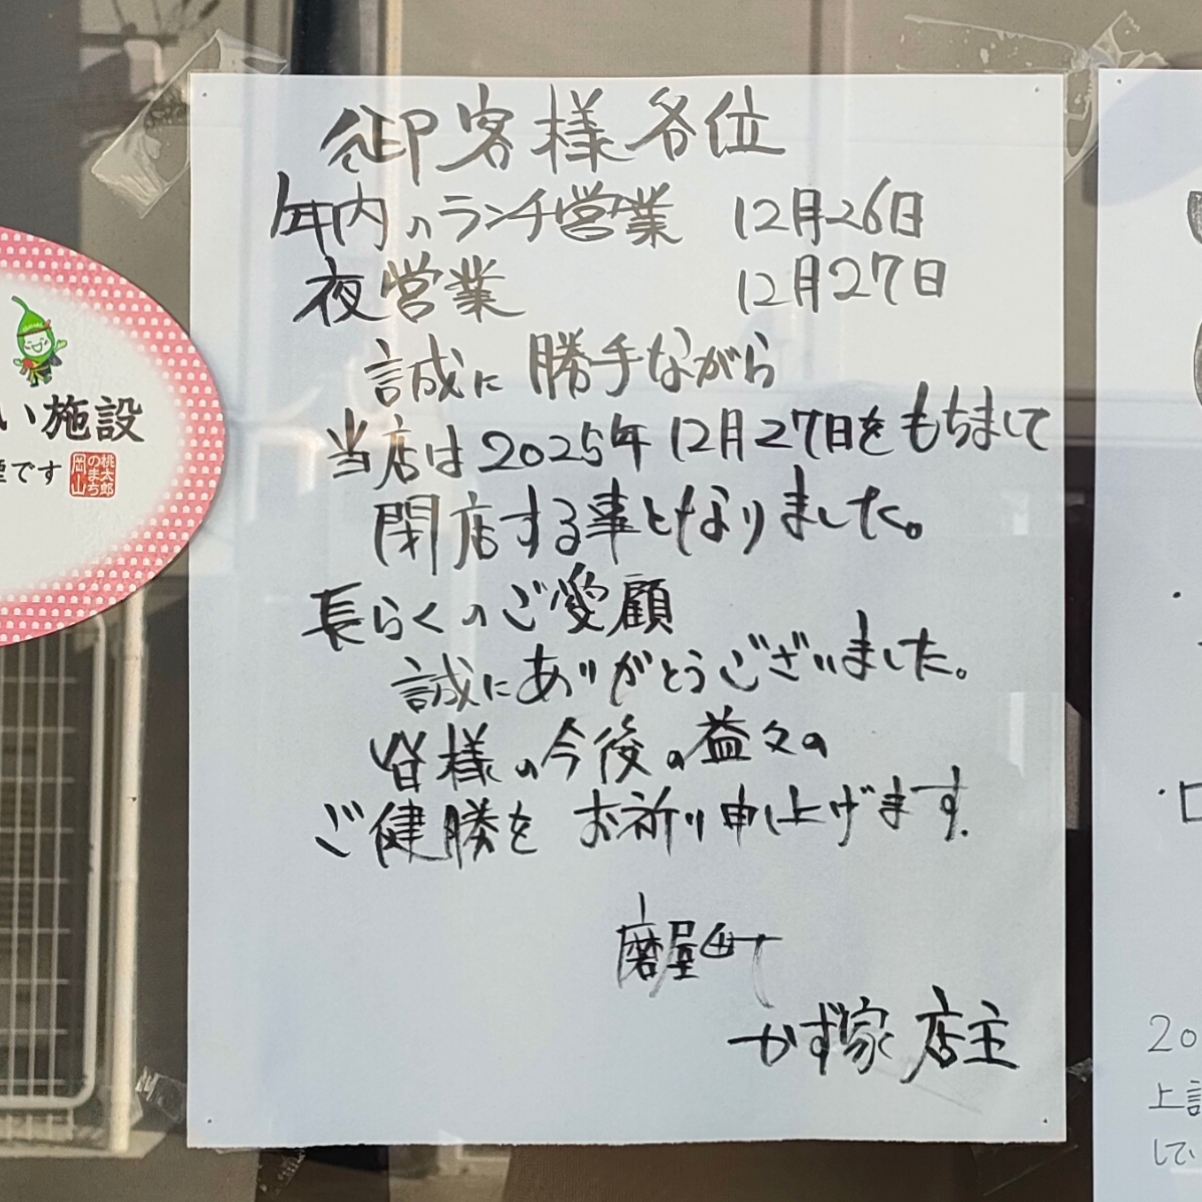 御客様各位
年内のランチ営業 12月26日
夜営業 12月27日
誠に勝手ながら
当店は2025年12月27日をもちまして
閉店する事となりました。
長らくのご愛顧
誠にありがとうございました。
皆様の今後の益々の
ご健勝をお祈り申し上げます.
磨屋町
かず家 店主
い施設
煙です
桃太郎のまち岡山
20
上記
してい